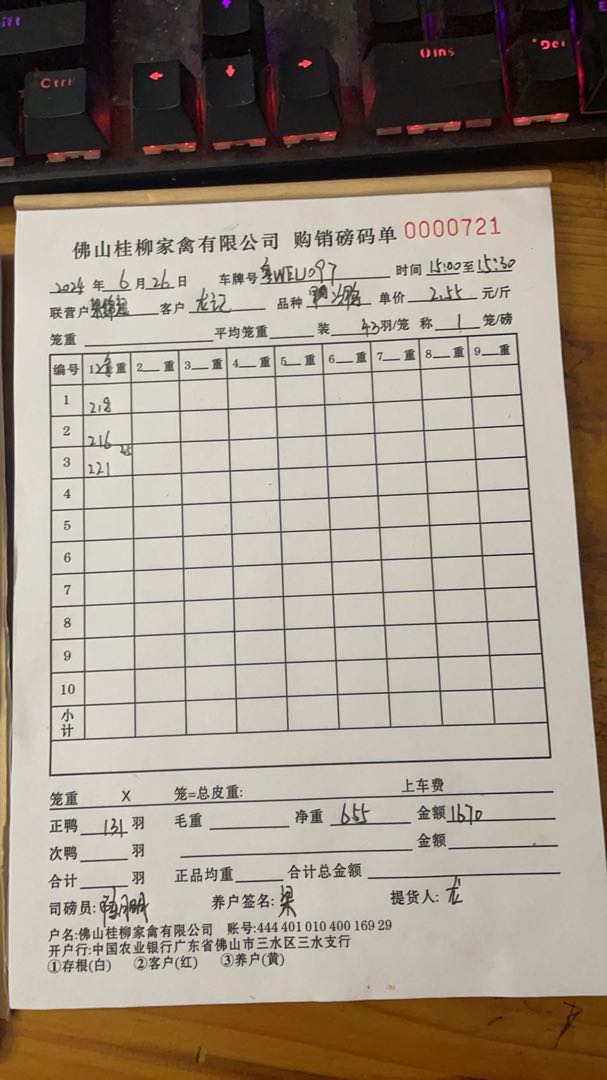 ift
Ctrl
Ins
Del
佛山桂柳家禽有限公司 购销磅码单 0000721
2024 年 6 月 26 日 车牌号 粤WEU097 时间 15:00至15:30
联营户 客户 龙记 品种 单价 2.55 元/斤
笼重 平均笼重 装 43 羽/笼 称 1 笼/磅
编号 1净重 2 重 3 重 4 重 5 重 6 重 7 重 8 重 9 重
1 218
2 216
3 221 45
4
5
6
7
8
9
10
小计
笼重 X 笼=总皮重: 上车费
正鸭 131 羽 毛重 净重 655 金额 1670
次鸭 羽 金额
合计 羽 正品均重 合计总金额
司磅员: 养户签名: 梁 提货人: 龙
户名:佛山桂柳家禽有限公司 账号:444 401 010 400 169 29
开户行:中国农业银行广东省佛山市三水区三水支行
①存根(白) ②客户(红) ③养户(黄)